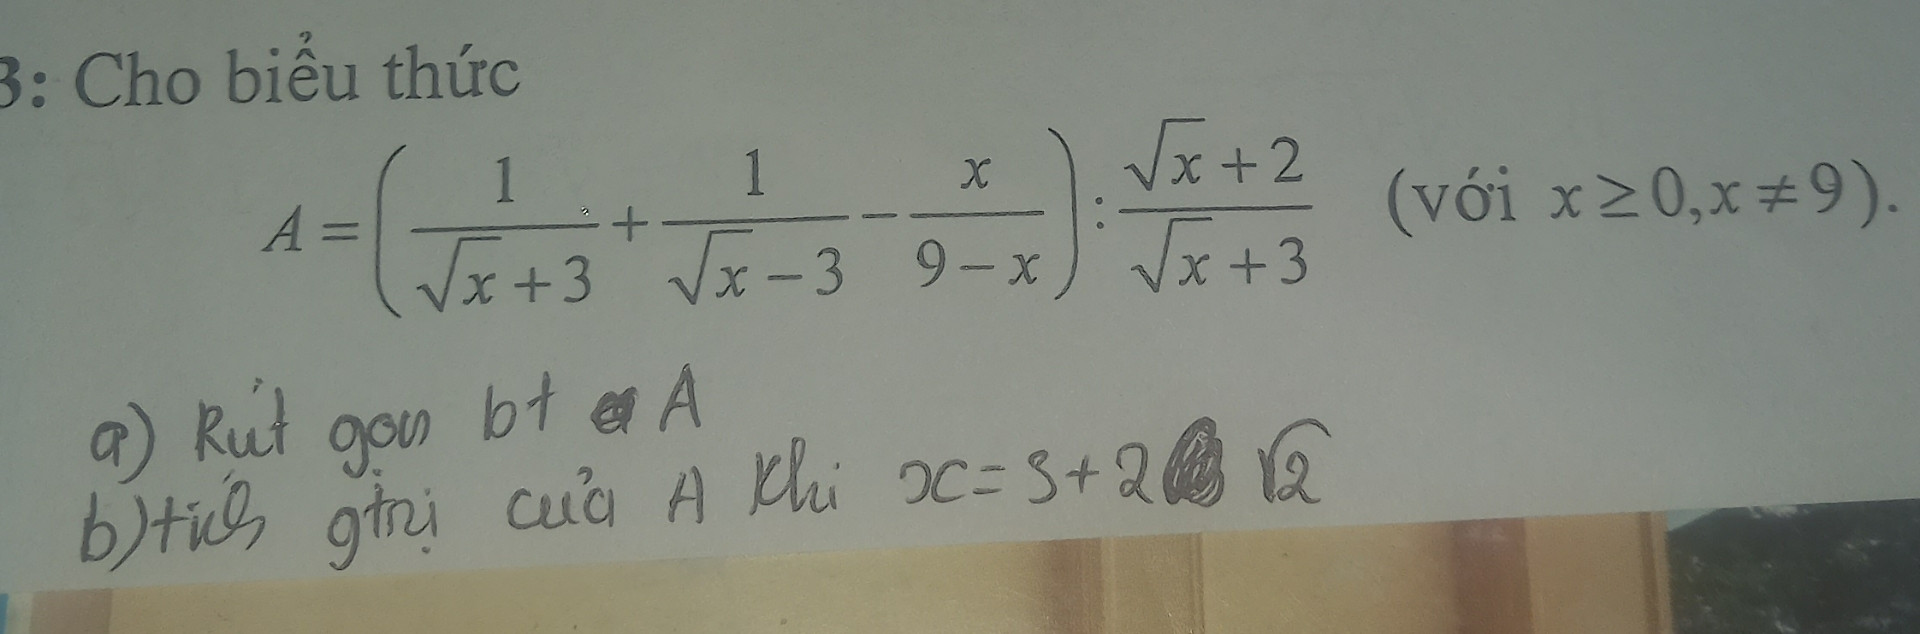 3: Cho biểu thức
A = ( 1/(√x + 3) + 1/(√x − 3) − x/(9 − x) ) : (√x + 2)/(√x + 3) (với x ≥ 0, x ≠ 9).
a) Rút gọn bt A
b) tính gtrị của A khi x = 3 + 2 √2